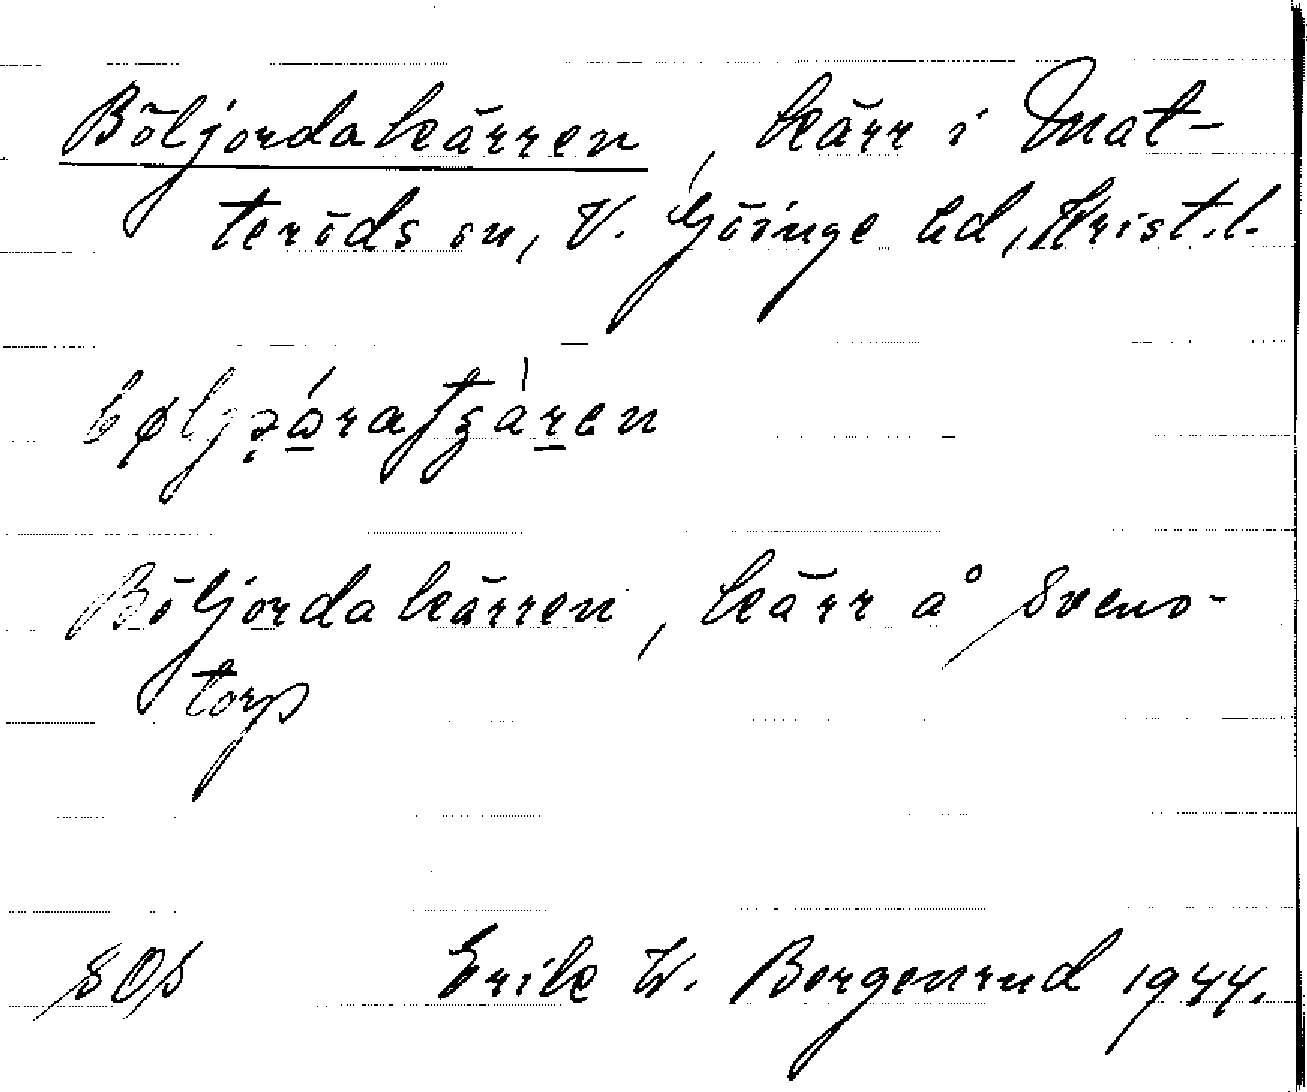 Böljordakärren, kärr i Mat-
teröds sn, V. Göinge hd, Krist.l.
Böljordakärren, kärr å Svens-
torp
SOS Erik W. Borgenrud 1944.